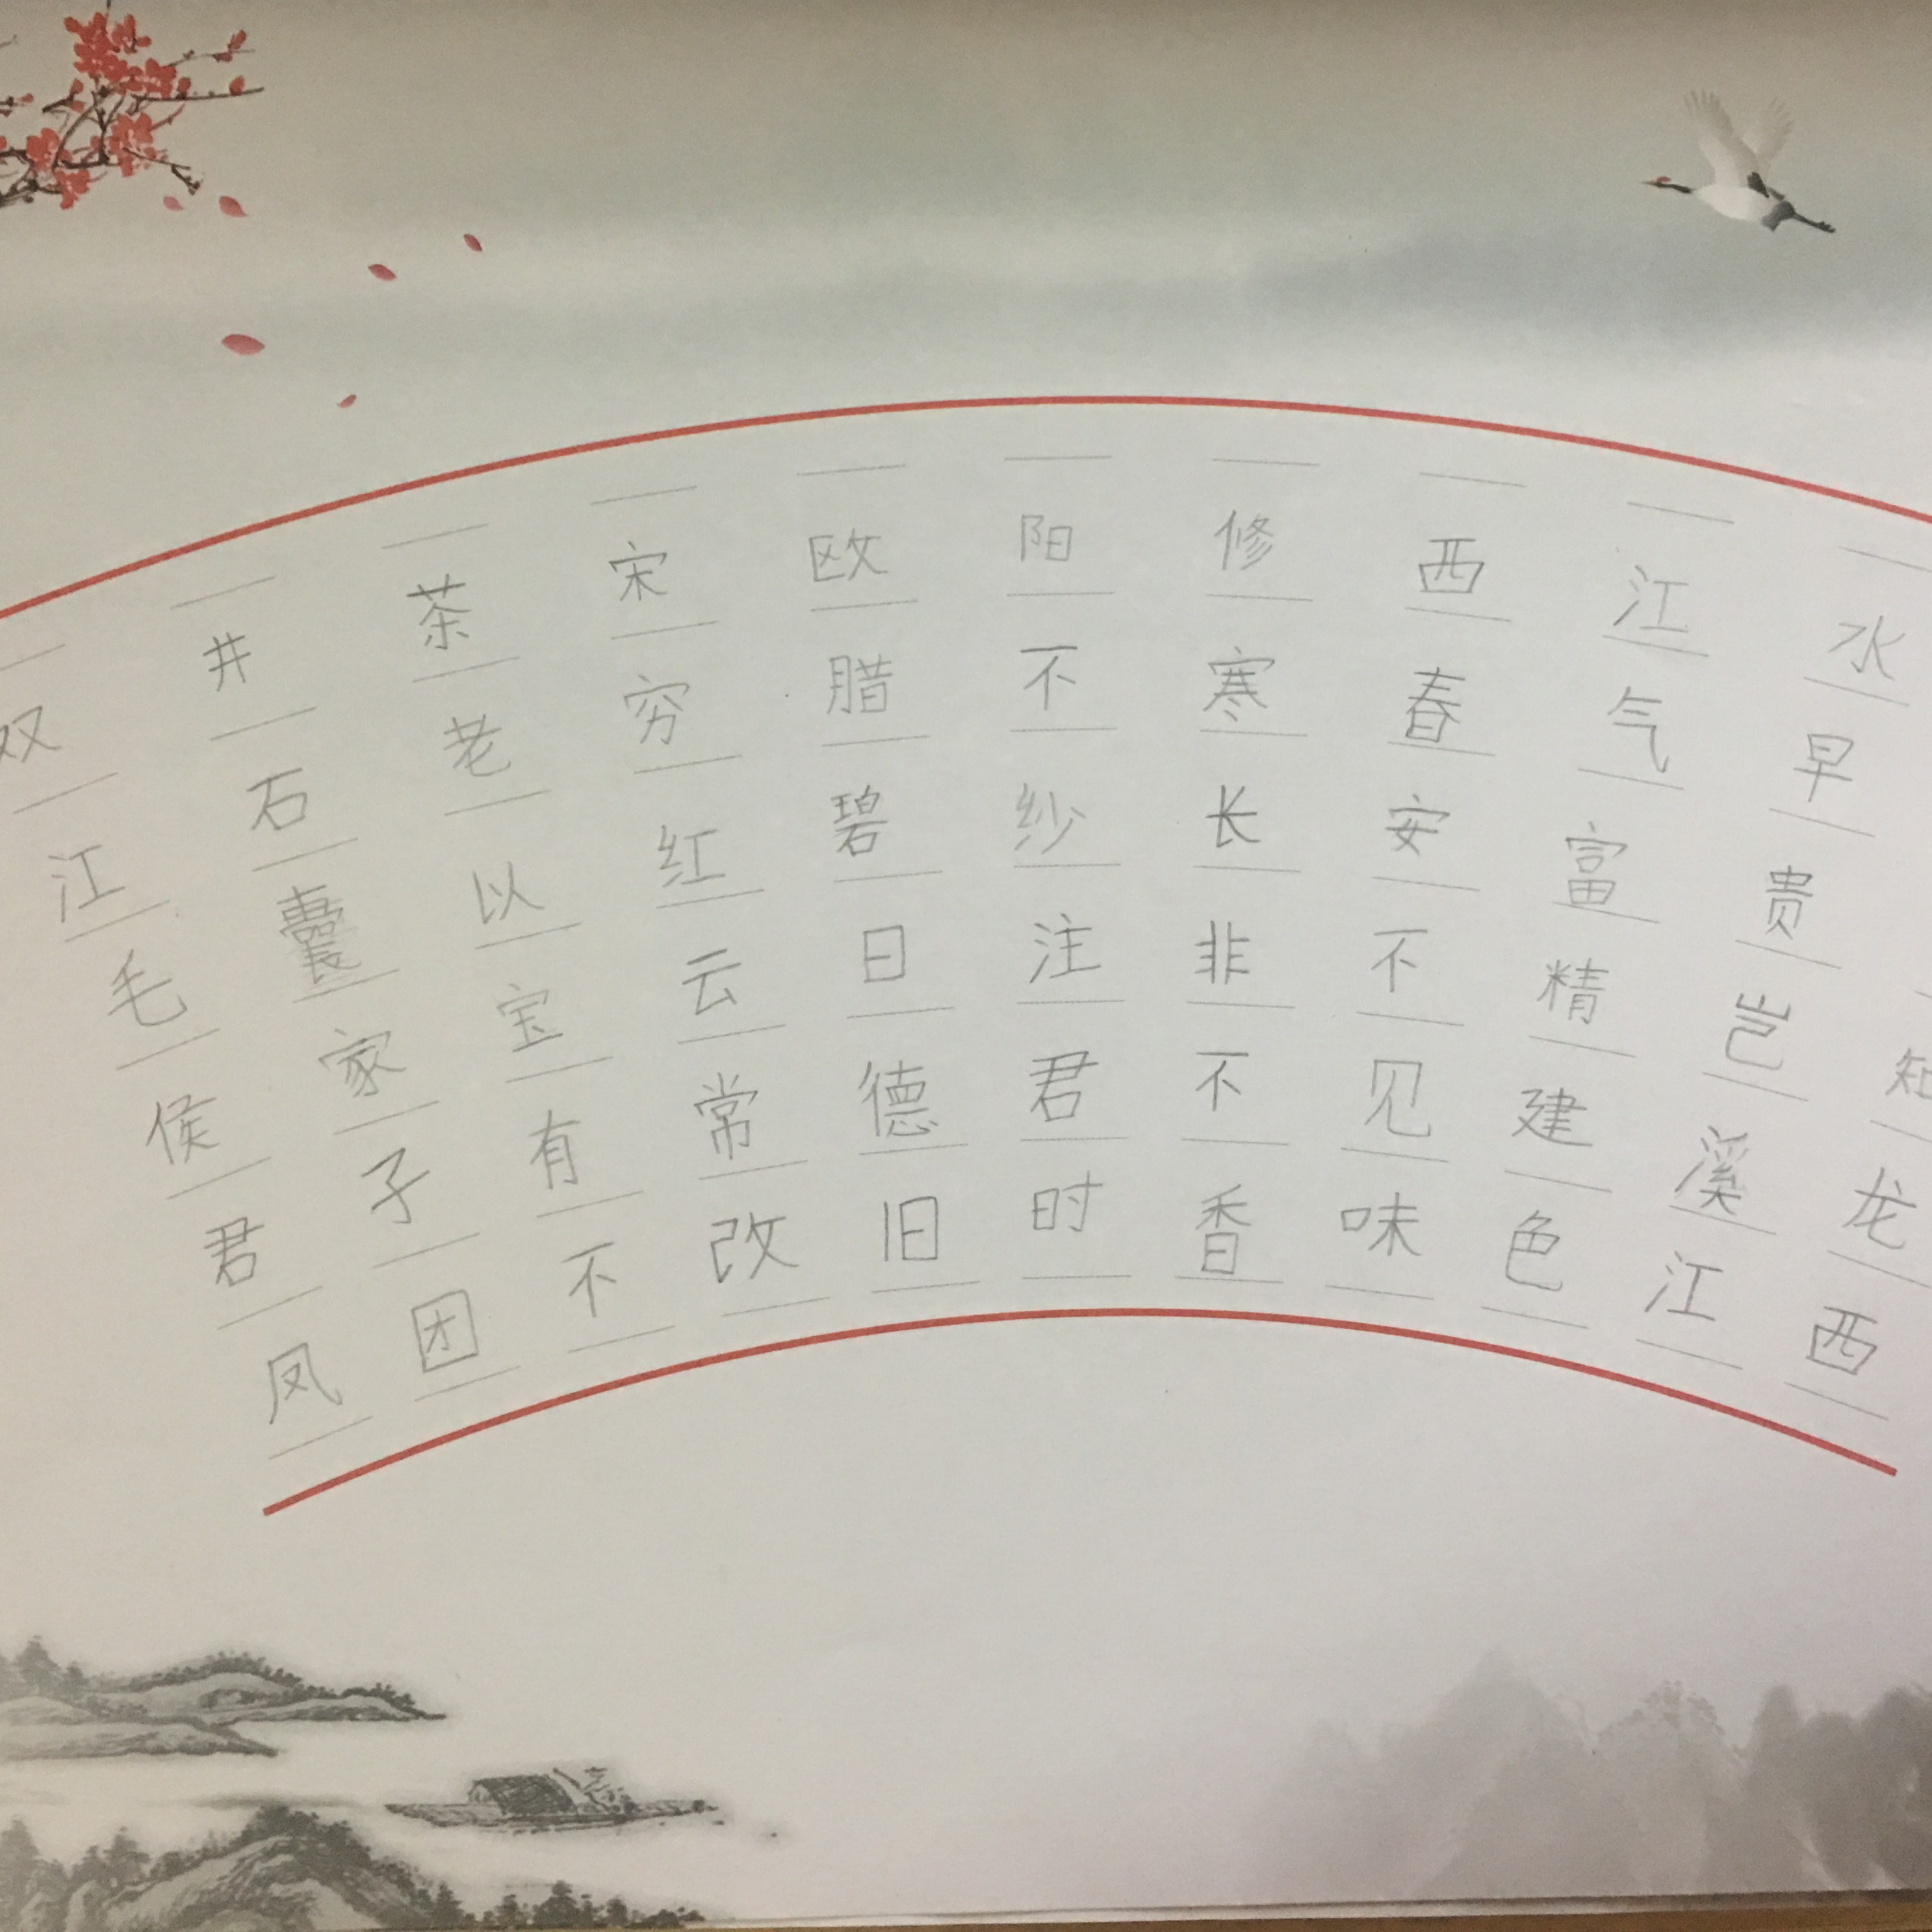 双井茶宋欧阳修西江水
江石老穷腊不寒春气早
毛囊以红碧纱长安富贵
侯家宝云日注非不精岂知
君子有常德君不见建溪龙
凤团不改旧时香味色江西